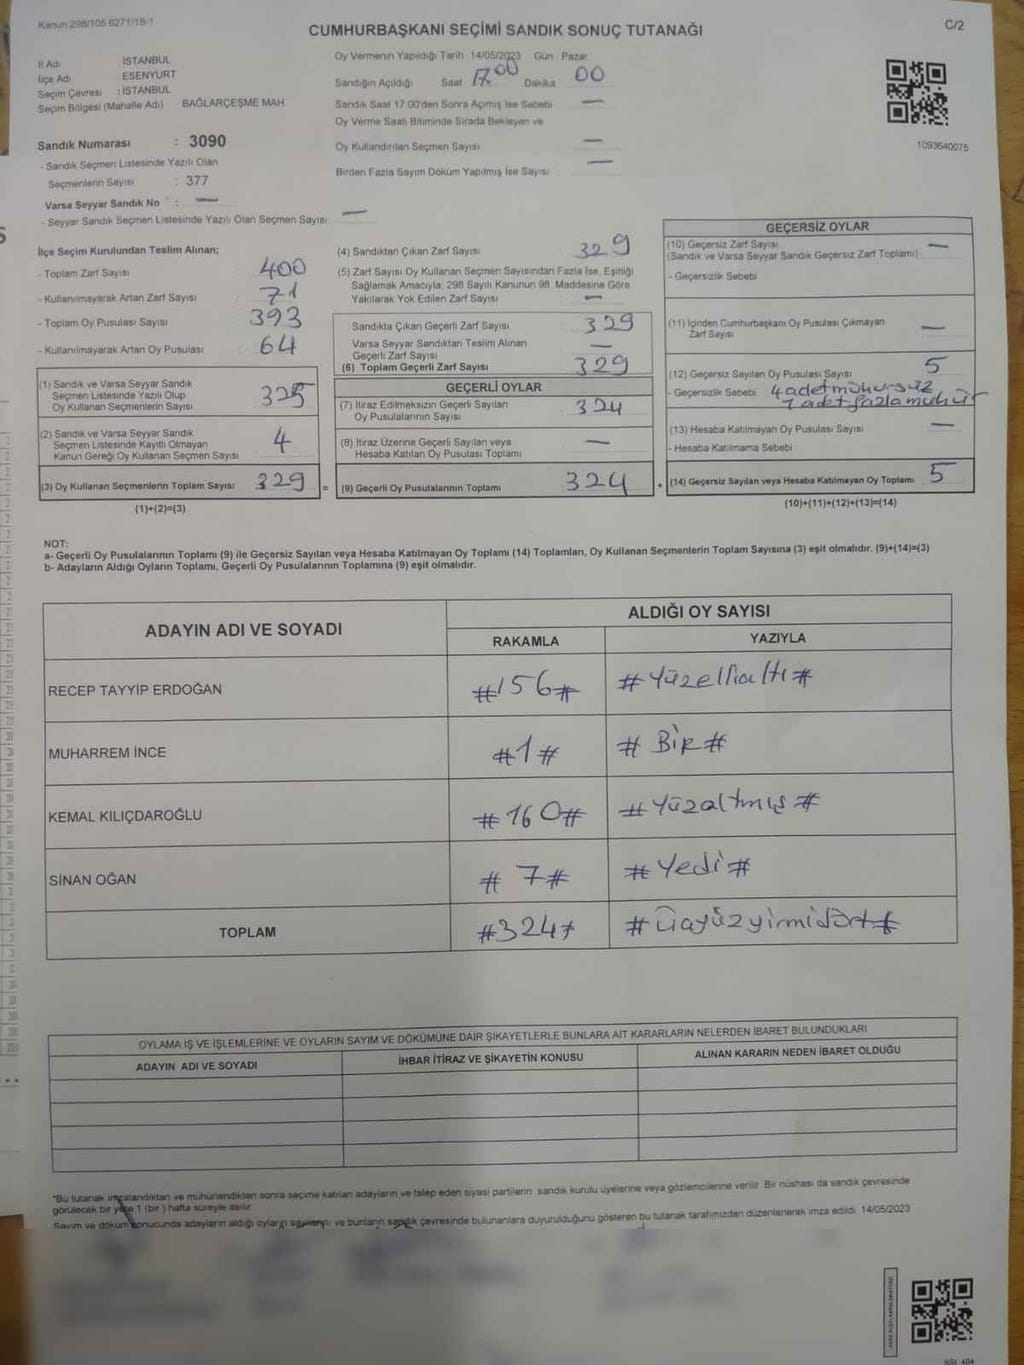 Kanun 298/105 6271/15-1
CUMHURBAŞKANI SEÇİMİ SANDIK SONUÇ TUTANAĞI
C/2
İl Adı İSTANBUL
İlçe Adı ESENYURT
Seçim Çevresi : İSTANBUL
Seçim Bölgesi (Mahalle Adı) BAĞLARÇEŞME MAH
Sandık Numarası : 3090
- Sandık Seçmen Listesinde Yazılı Olan
Seçmenlerin Sayısı : 377
Varsa Seyyar Sandık No : —
- Seyyar Sandık Seçmen Listesinde Yazılı Olan Seçmen Sayısı —
Oy Vermenin Yapıldığı Tarih 14/05/2023 Gün : Pazar
Sandığın Açıldığı Saat 17.00 Dakika 00
Sandık Saat 17.00'den Sonra Açımış İse Sebebi —
Oy Verme Saati Bitiminde Sırada Bekleyen ve
Oy Kullandırılan Seçmen Sayısı —
Birden Fazla Sayım Döküm Yapılmış İse Sayısı —
1093640075
İlçe Seçim Kurulundan Teslim Alınan;
- Toplam Zarf Sayısı 400
- Kullanılmayarak Artan Zarf Sayısı 71
- Toplam Oy Pusulası Sayısı 393
- Kullanılmayarak Artan Oy Pusulası 64
(1) Sandık ve Varsa Seyyar Sandık
Seçmen Listesinde Yazılı Olup
Oy Kullanan Seçmenlerin Sayısı 325
(2) Sandık ve Varsa Seyyar Sandık
Seçmen Listesinde Kayıtlı Olmayan
Kanun Gereği Oy Kullanan Seçmen Sayısı 4
(3) Oy Kullanan Seçmenlerin Toplam Sayısı 329 =
(1)+(2)=(3)
(4) Sandıktan Çıkan Zarf Sayısı 329
(5) Zarf Sayısı Oy Kullanan Seçmen Sayısından Fazla İse, Eşitliği
Sağlamak Amacıyla; 298 Sayılı Kanunun 98. Maddesine Göre
Yakılarak Yok Edilen Zarf Sayısı —
Sandıkta Çıkan Geçerli Zarf Sayısı 329
Varsa Seyyar Sandıktan Teslim Alınan
Geçerli Zarf Sayısı —
(6) Toplam Geçerli Zarf Sayısı 329
GEÇERLİ OYLAR
(7) İtiraz Edilmeksizin Geçerli Sayılan
Oy Pusulalarının Sayısı 324
(8) İtiraz Üzerine Geçerli Sayılan veya
Hesaba Katılan Oy Pusulası Toplamı —
(9) Geçerli Oy Pusulalarının Toplamı 324 +
GEÇERSİZ OYLAR
(10) Geçersiz Zarf Sayısı —
(Sandık ve Varsa Seyyar Sandık Geçersiz Zarf Toplamı)
- Geçersizlik Sebebi
(11) İçinden Cumhurbaşkanı Oy Pusulası Çıkmayan
Zarf Sayısı —
(12) Geçersiz Sayılan Oy Pusulası Sayısı 5
- Geçersizlik Sebebi 4 adet mühürsüz
1 adet fazla mühür
(13) Hesaba Katılmayan Oy Pusulası Sayısı —
- Hesaba Katılmama Sebebi
(14) Geçersiz Sayılan veya Hesaba Katılmayan Oy Toplamı 5
(10)+(11)+(12)+(13)=(14)
NOT:
a- Geçerli Oy Pusulalarının Toplamı (9) ile Geçersiz Sayılan veya Hesaba Katılmayan Oy Toplamı (14) Toplamları, Oy Kullanan Seçmenlerin Toplam Sayısına (3) eşit olmalıdır. (9)+(14)=(3)
b- Adayların Aldığı Oyların Toplamı, Geçerli Oy Pusulalarının Toplamına (9) eşit olmalıdır.
ADAYIN ADI VE SOYADI
ALDIĞI OY SAYISI
RAKAMLA YAZIYLA
RECEP TAYYİP ERDOĞAN #156# #Yüzellialtı#
MUHARREM İNCE #1# # BİR#
KEMAL KILIÇDAROĞLU #160# #Yüzaltmış#
SİNAN OĞAN # 7# #Yedi#
TOPLAM #324# #Üçyüzyirmidört#
OYLAMA İŞ VE İŞLEMLERİNE VE OYLARIN SAYIM VE DÖKÜMÜNE DAİR ŞİKAYETLERLE BUNLARA AİT KARARLARIN NELERDEN İBARET BULUNDUKLARI
ADAYIN ADI VE SOYADI İHBAR İTİRAZ VE ŞİKAYETİN KONUSU ALINAN KARARIN NEDEN İBARET OLDUĞU
*Bu tutanak imzalandıktan ve mühürlendikten sonra seçime katılan adayların ve talep eden siyasi partilerin sandık kurulu üyelerine veya gözlemcilerine verilir. Bir nüshası da sandık çevresinde
görülecek bir yere 1 (bir) hafta süreyle asılır.
Sayım ve döküm sonucunda adayların aldığı oyların sayılarını ve bunların sandık çevresinde bulunanlara duyurulduğunu gösteren bu tutanak tarafımızdan düzenlenerek imza edildi. 14/05/2023